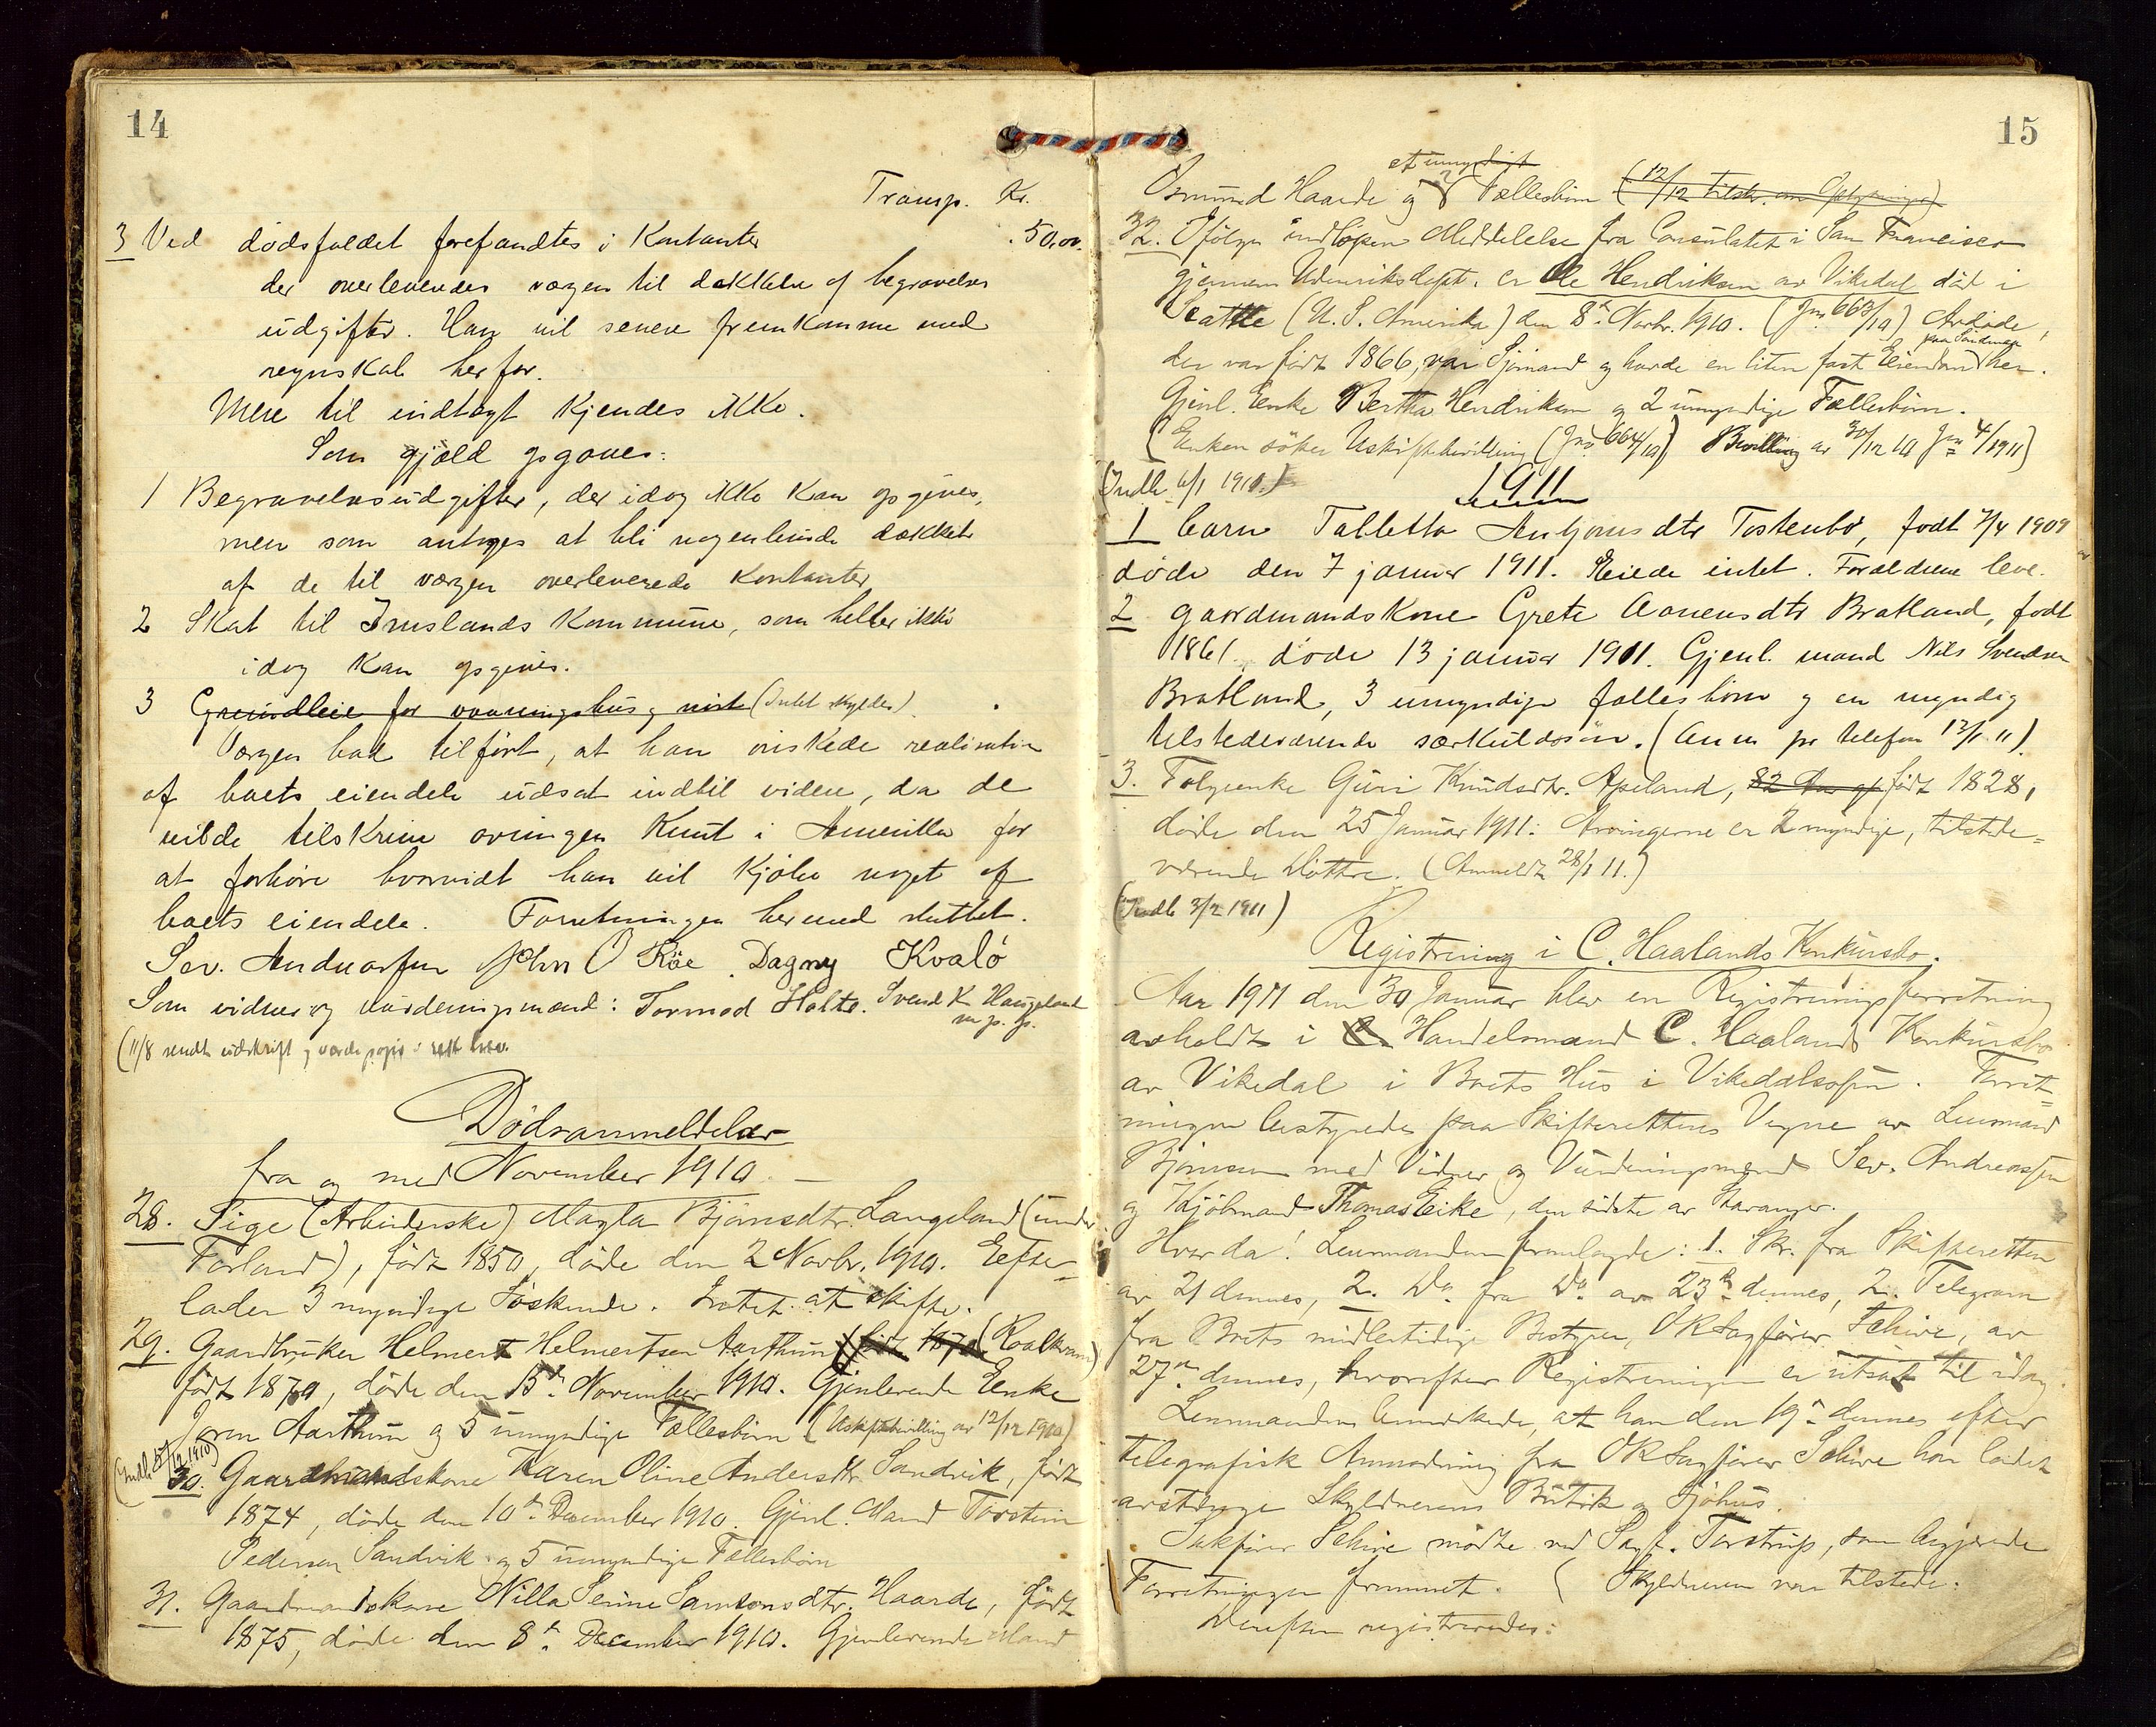 14
Transp. Kr.
3 Ved dödsfaldet forefandtes i Kontanter 50,00.
der overleveredes værgen til dækkelse af begravelses
udgifter. Han vil senere fremkomme med
regnskab herfor.
Mere til indtægt kjendes ikke.
Som gjæld opgaves:
1 Begravelsesudgifter, der idag ikke kan opgives,
men som antages at bli nogenlunde dækket
af de til værgen overleverede kontanter
2 Skat til Imslands Kommune, som heller ikke
idag kan opgives.
3 Grundleie for vaaningshus og nøst (Intet skyldes)
Værgen bad tilført, at han ønskede realisation
af boets eiendele udsat indtil videre, da de
vilde tilskrive arvingen Knut i Amerika for
at forhøre hvorvidt han vil kjøbe noget af
boets eiendele. Forretningen hermed sluttet.
Sev. Andreassen John O Röe Dagny Kvalö
Som vidner og vurderingsmænd: Tormod Holte. Svend K Haugeland
m. p. p.
(11/8 sendt udskrift og værdipapir i rek brev.
Dödsanmeldelser
fra og med November 1910. —
28. Pige (Arbeiderske) Magla Björnsdtr. Langeland (under
Förland), född 1850, døde den 2 Novbr. 1910. Efter-
lader 3 myndige Söskende. Intet at skifte.
29. Gaardbruker Helmert Helmertsen Aarthun født 1870 (Roalkvam)
født 1870, døde den 13de November 1910. Gjenlevende Enke
Joren Aarthun og 5 umyndige Fællesbörn (Uskiftebevilling av 12/12 1910)
(Indb 15/12 1910)
30. Gaardmandskone Karen Oline Andersdtr. Sandvik, født
1874, døde den 10de December 1910. Gjenl. Mand Torstein
Pedersen Sandvik og 5 umyndige Fællesbörn
31. Gaardmandskone Nilla Serine Samsonsdtr. Haarde, født
1875, døde den 8de December 1910. Gjenlevende Mand
15
et umyndigt
Osmund Haarde og 8 Fællesbörn (12/12 tilskr. om Oplysninger)
32. Ifölge indlöpen Meddelelse fra Consulatet i San Francisco
gjennem Udenriksdept. er Ole Hendriksen av Vikedal död i
Seattle (U. S. Amerika) den 8de Novbr. 1910. (Jno 663/10) Avdöde,
paa Sandeid
der var född 1866, var Sjömand og havde en liten fast Eiendom her.
Gjenl. Enke Bertha Hendriksen og 2 umyndige Fællesbörn.
(Enken söker Uskiftebevilling (Jno 664/10) Bevilling av 30/12 10 Jno 4/1911)
(Indb 6/1 1910.)
1911
1 barn Tabletta Antonsdtr Tostenbö, født 7/4 1909
døde den 7 januar 1911. Eiede intet. Forældrene leve.
2 gaardmandskone Grete Aanensdtr Bratland, født
1861. døde 13 januar 1911. Gjenl. mand Nils Svendsen
Bratland, 3 umyndige fællesbörn og en myndig
tilstedeværende særkuldssön. (Anm pr telefon 17/1 11)
3. Folgeenke Guri Knudsdtr. Apeland, 82 Aar gl født 1828,
døde den 25 Januar 1911: Arvingerne er 2 myndige, tilstede-
værende Döttre. (Anmeldt 28/1 11.)
(Indb 3/2 1911)
Registrering i C. Haalands Konkursbo.
Aar 1911 den 30 Januar blev en Registreringsforretning
avholdt i C. Handelsmand C. Haalands Konkursbo
av Vikedal i Boets Hus i Vikedalsosen. Forret-
ningen bestyredes paa Skifterettens Vegne av Lensmand
Björnsen med Vidner og Vurderingsmænd Sev. Andreassen
og Kjöbmand Thomas Eike, den sidste av Stavanger.
Hvor da! Lensmanden fremlagde: 1. Skr. fra Skifteretten
av 21 dennes, 2. Do fra Do av 23de dennes, 2. Telegram
fra Boets midlertidige Bestyrer, OR Sagförer Schive, av
27de dennes, hvorefter Registreringen er utsat til idag.
Lensmanden bemerkede, at han den 19de dennes efter
telegrafisk Anmodning fra OR Sagförer Schive har ladet
avstænge Skyldnerens Butik og Sjöhus.
Sakförer Schive mödte ved Sagf. Torstrup, som begjærede
Forretningen fremmet. ( Skyldneren var tilstede.
Derefter registreredes: